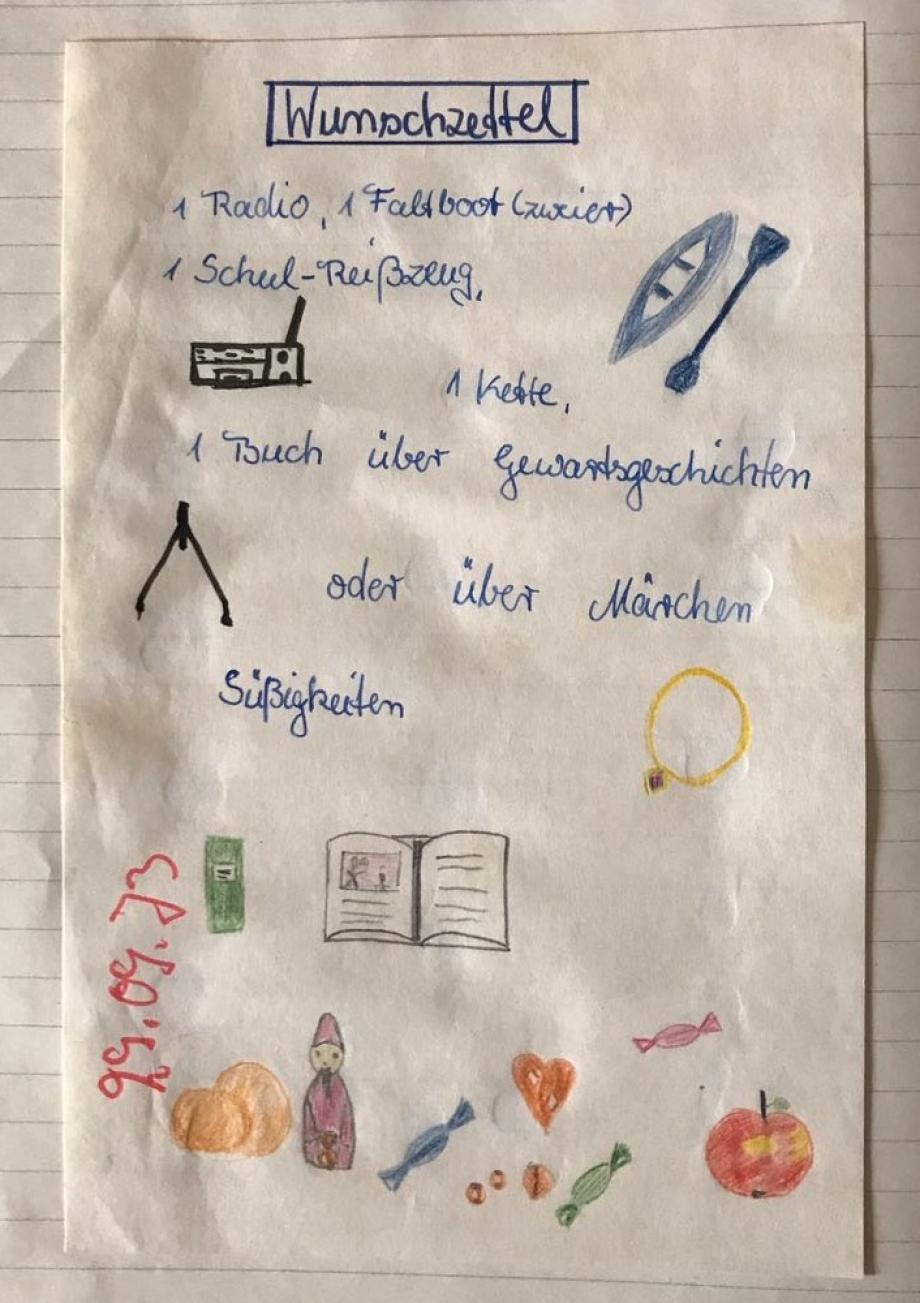 Wunschzettel
1 Radio, 1 Faltboot (zweier)
1 Schul-Reißzeug,
1 Kette,
1 Buch über Gewartsgeschichten
oder über Märchen
Süßigkeiten
29.09.73